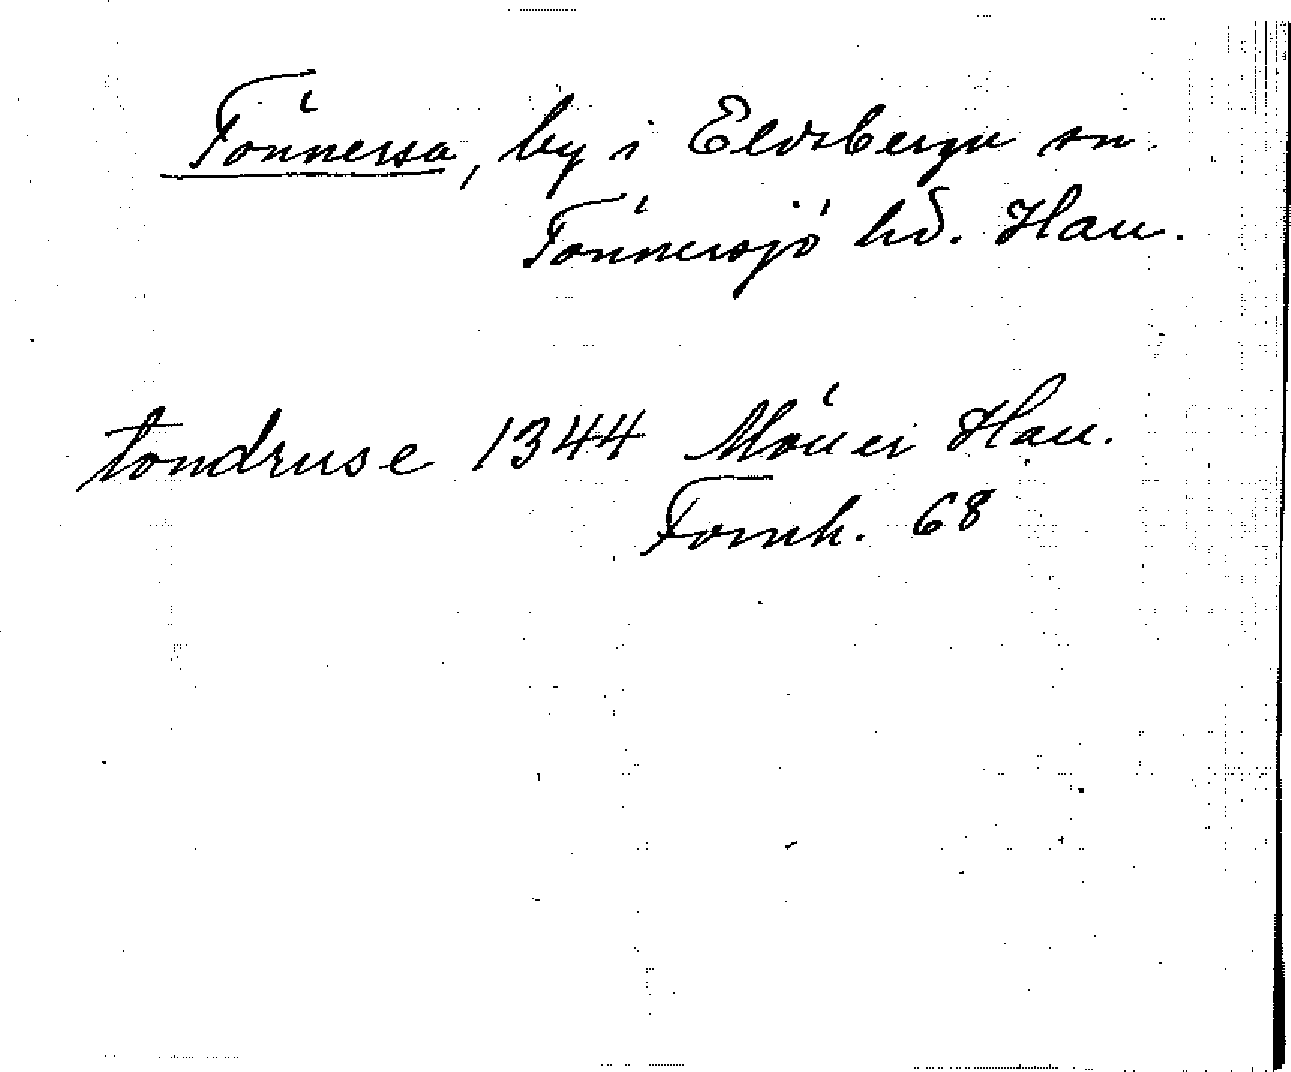 Tönnersa, by i Eldsberga sn
Tönnersjö hd. Hall.
tondruse 1344 Möller Hall.
Fornh. 68